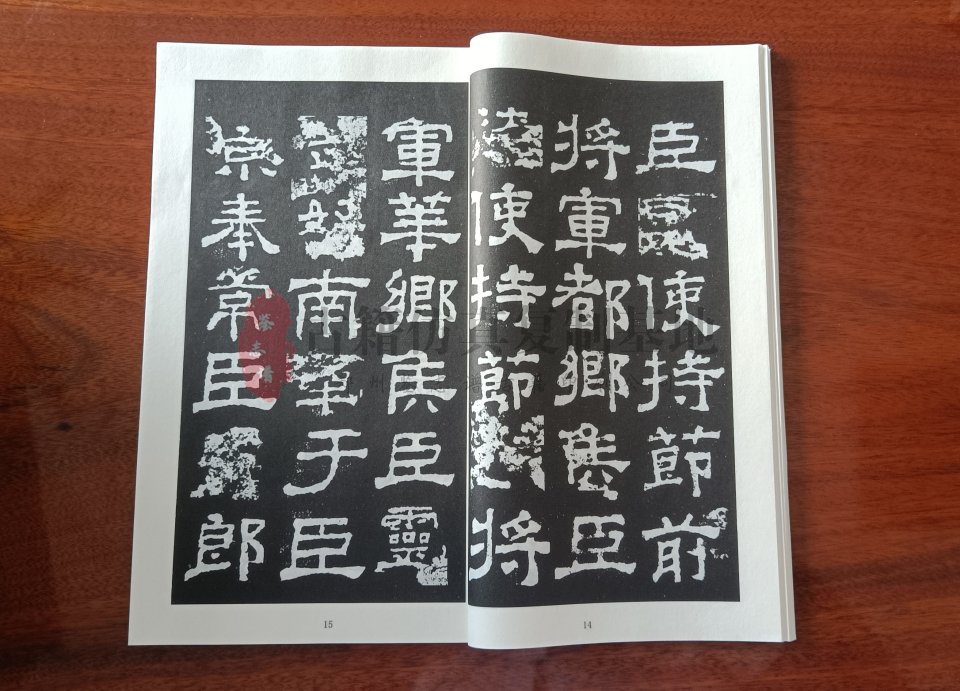 臣使持節前
將軍都鄉侯臣
使持節將
軍華鄉侯臣靈
南單于臣
泉奉常臣郎
14
15
古籍仿真复制基地